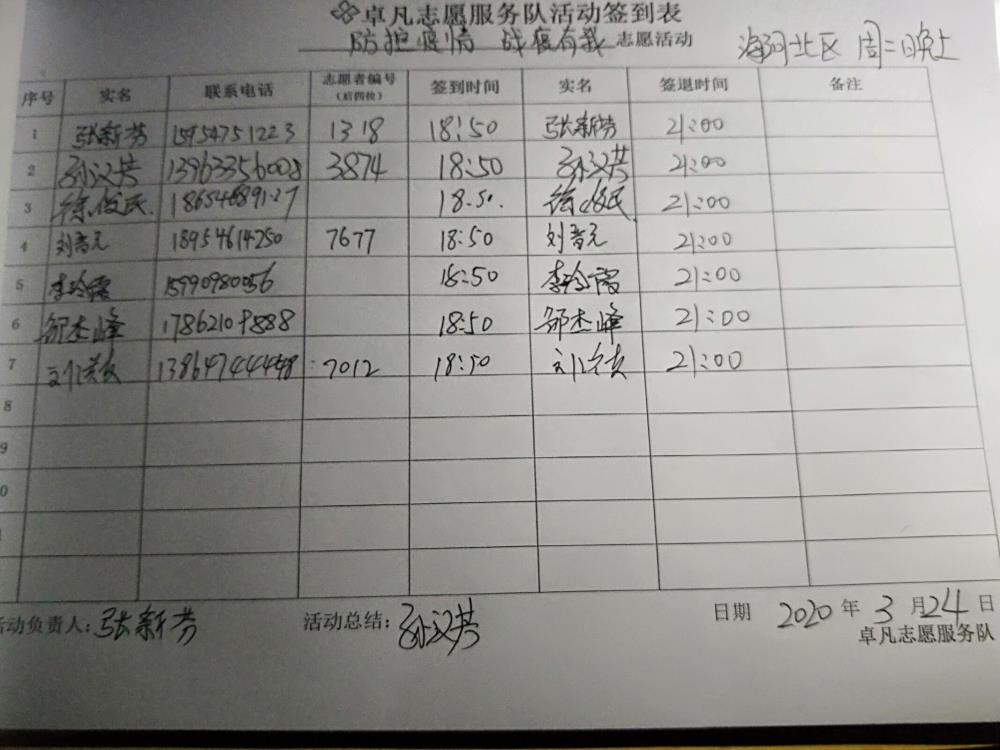 卓凡志愿服务队活动签到表
防护疫情 战疫有我 志愿活动 海河北区 周二晚上
序号 实名 联系电话 志愿者编号（后四位） 签到时间 实名 签退时间 备注
1 张新芳 15954751223 1318 18:50 张新芳 21:00
2 孙汉芸 13963356008 3874 18:50 孙汉芸 21:00
3 徐俊民 18.50. 徐俊民 21:00
4 刘春元 18954614250 7677 18:50 刘春元 21:00
5 李玲霞 15990980056 18:50 李玲霞 21:00
6 邹杰峰 17862109888 18:50 邹杰峰 21:00
7 7012 18:50 21:00
8
9
0
活动负责人：张新芳 活动总结：孙汉芸 日期 2020年3月24日
卓凡志愿服务队